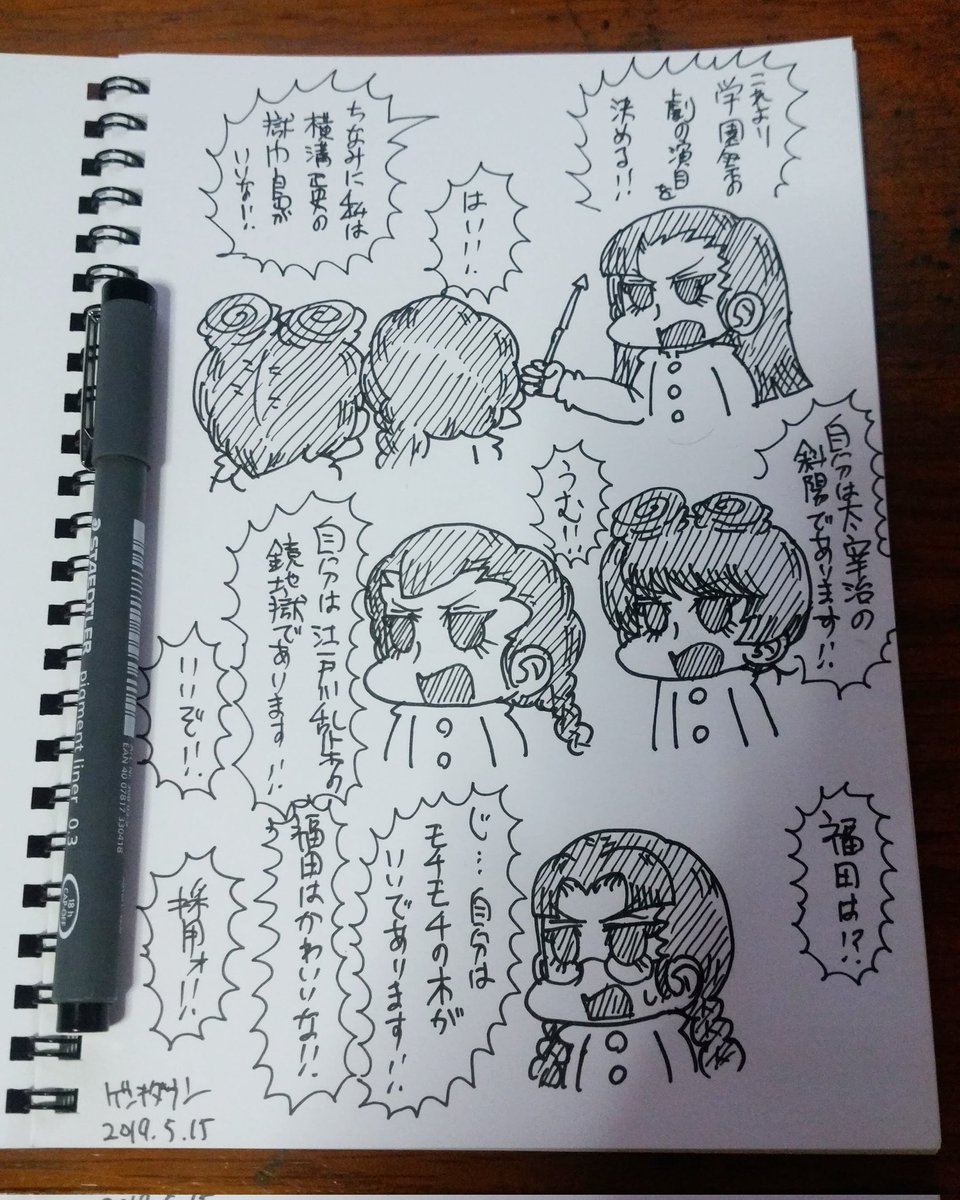 これより
学園祭の
劇の演目を
決める!!
はい!!!
ちなみに私は
横溝正史の
獄門島が
いいな!!
自分は太宰治の
斜陽であります!!
うむ!!!
自分は江戸川乱歩の
鏡地獄であります!!
いいぞ!!
福田は!?
じ…自分は
モチモチの木が
いいであります!!
福田はかわいいな!!
採用ォ!!
2019.5.15
STAEDTLER pigment liner 0.3
EAN 40 07817 330418
18 h
CAP-OFF
2019.5.15